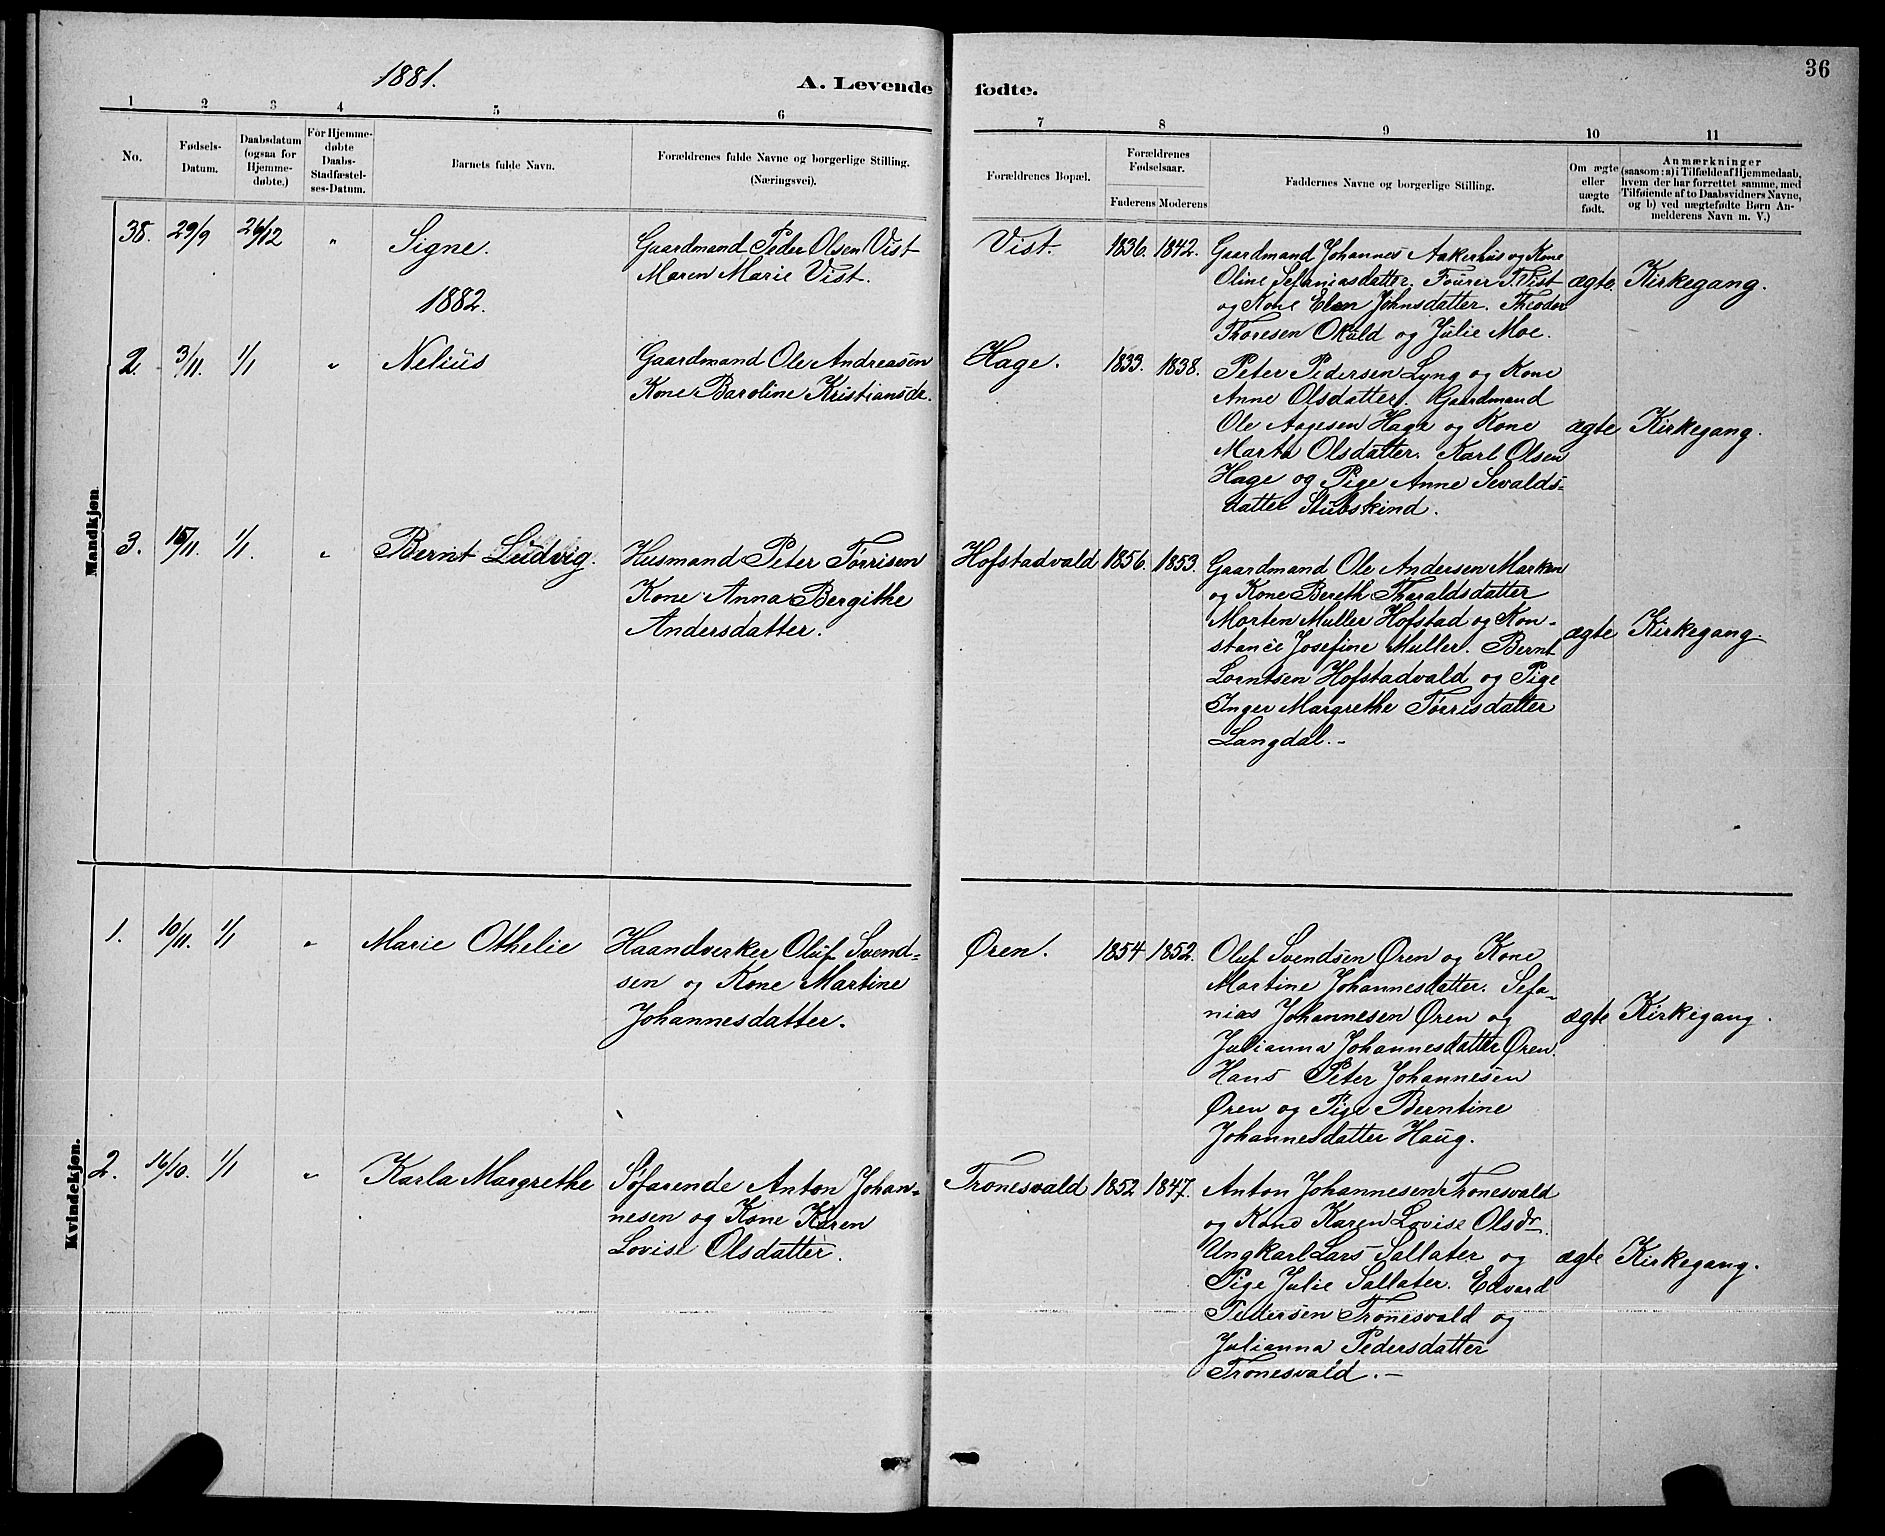 36
1881.
A. Levende fødte.
1 2 3 4 5 6 7 8 9 10 11
No.
Fødsels-
Datum.
Daabsdatum
(ogsaa for
Hjemme-
døbte.)
For Hjemme-
døbte
Daabs-
Stadfæstel-
ses-Datum.
Barnets fulde Navn.
Forældrenes fulde Navne og borgerlige Stilling.
(Næringsvei).
Forældrenes Bopæl.
Forældrenes
Fødselsaar.
Faderens Moderens
Faddernes Navne og borgerlige Stilling.
Om ægte
eller
uægte
født.
Anmærkninger
(saasom: a) i Tilfælde af Hjemmedaab,
hvem der har forrettet samme, med
Tilføiende af to Daabsvidners Navne,
og b) ved uægtefødte Børn An-
melderens Navn m. V.)
Mandkjøn.
38. 29/9 26/12 " Signe.
Gaardmand Peder Olsen Vist
Maren Marie Vist.
Vist. 1836. 1842.
Gaardmand Johannes Aakerhus og Kone
Oline Sefaniasdatter. Fourer T. Vist
og Kone Elen Johnsdatter. Theodor
Thoresen Okuld og Julie Moe.
ægte. Kirkegang.
1882.
2. 3/11. 1/1 " Nelius
Gaardmand Ole Andreasen
Kone Baroline Kristiansdr.
Hage. 1833. 1838.
Peter Pedersen Lyng og Kone
Anne Olsdatter. Gaardmand
Ole Aagesen Hage og Kone
Marta Olsdatter. Karl Olsen
Hage og Pige Anne Sevalds-
datter Stubskind.
ægte Kirkegang.
3. 15/11. 1/1. " Bernt Ludvig.
Husmand Peter Tørrisen
Kone Anna Bergithe
Andersdatter.
Hofstadvald 1856. 1853.
Gaardmand Ole Andersen Marken
og Kone Bereth Tharaldsdatter
Morten Muller Hofstad og Kon-
stance Josefine Muller. Bernt
Lorntsen Hofstadvald og Pige
Inger Margrethe Tørrisdatter
Langdal.-
ægte Kirkegang.
Kvindekjøn.
1. 10/11. 1/1 " Marie Othelie
Haandverker Oluf Svend-
sen og Kone Martine
Johannesdatter.
Øren. 1854 1852.
Oluf Svendsen Øren og Kone
Martine Johannesdatter. Sefa-
nias Johannesen Øren og
Julianna Johannesdatter Øren.
Hans Peter Johannesen
Øren og Pige Berntine
Johannesdatter Haug.
ægte Kirkegang.
2. 16/10. 1/1 " Karla Margrethe
Søfarende Anton Johan-
nesen og Kone Karen
Lovise Olsdatter.
Tronesvald 1852 1847.
Anton Johannesen Tronesvald
og Kone Karen Lovise Olsdr.
Ungkarl Lars Sallater og
Pige Julie Sallater. Edvard
Pedersen Tronesvald og
Julianna Pedersdatter
Tronesvald.-
ægte Kirkegang.